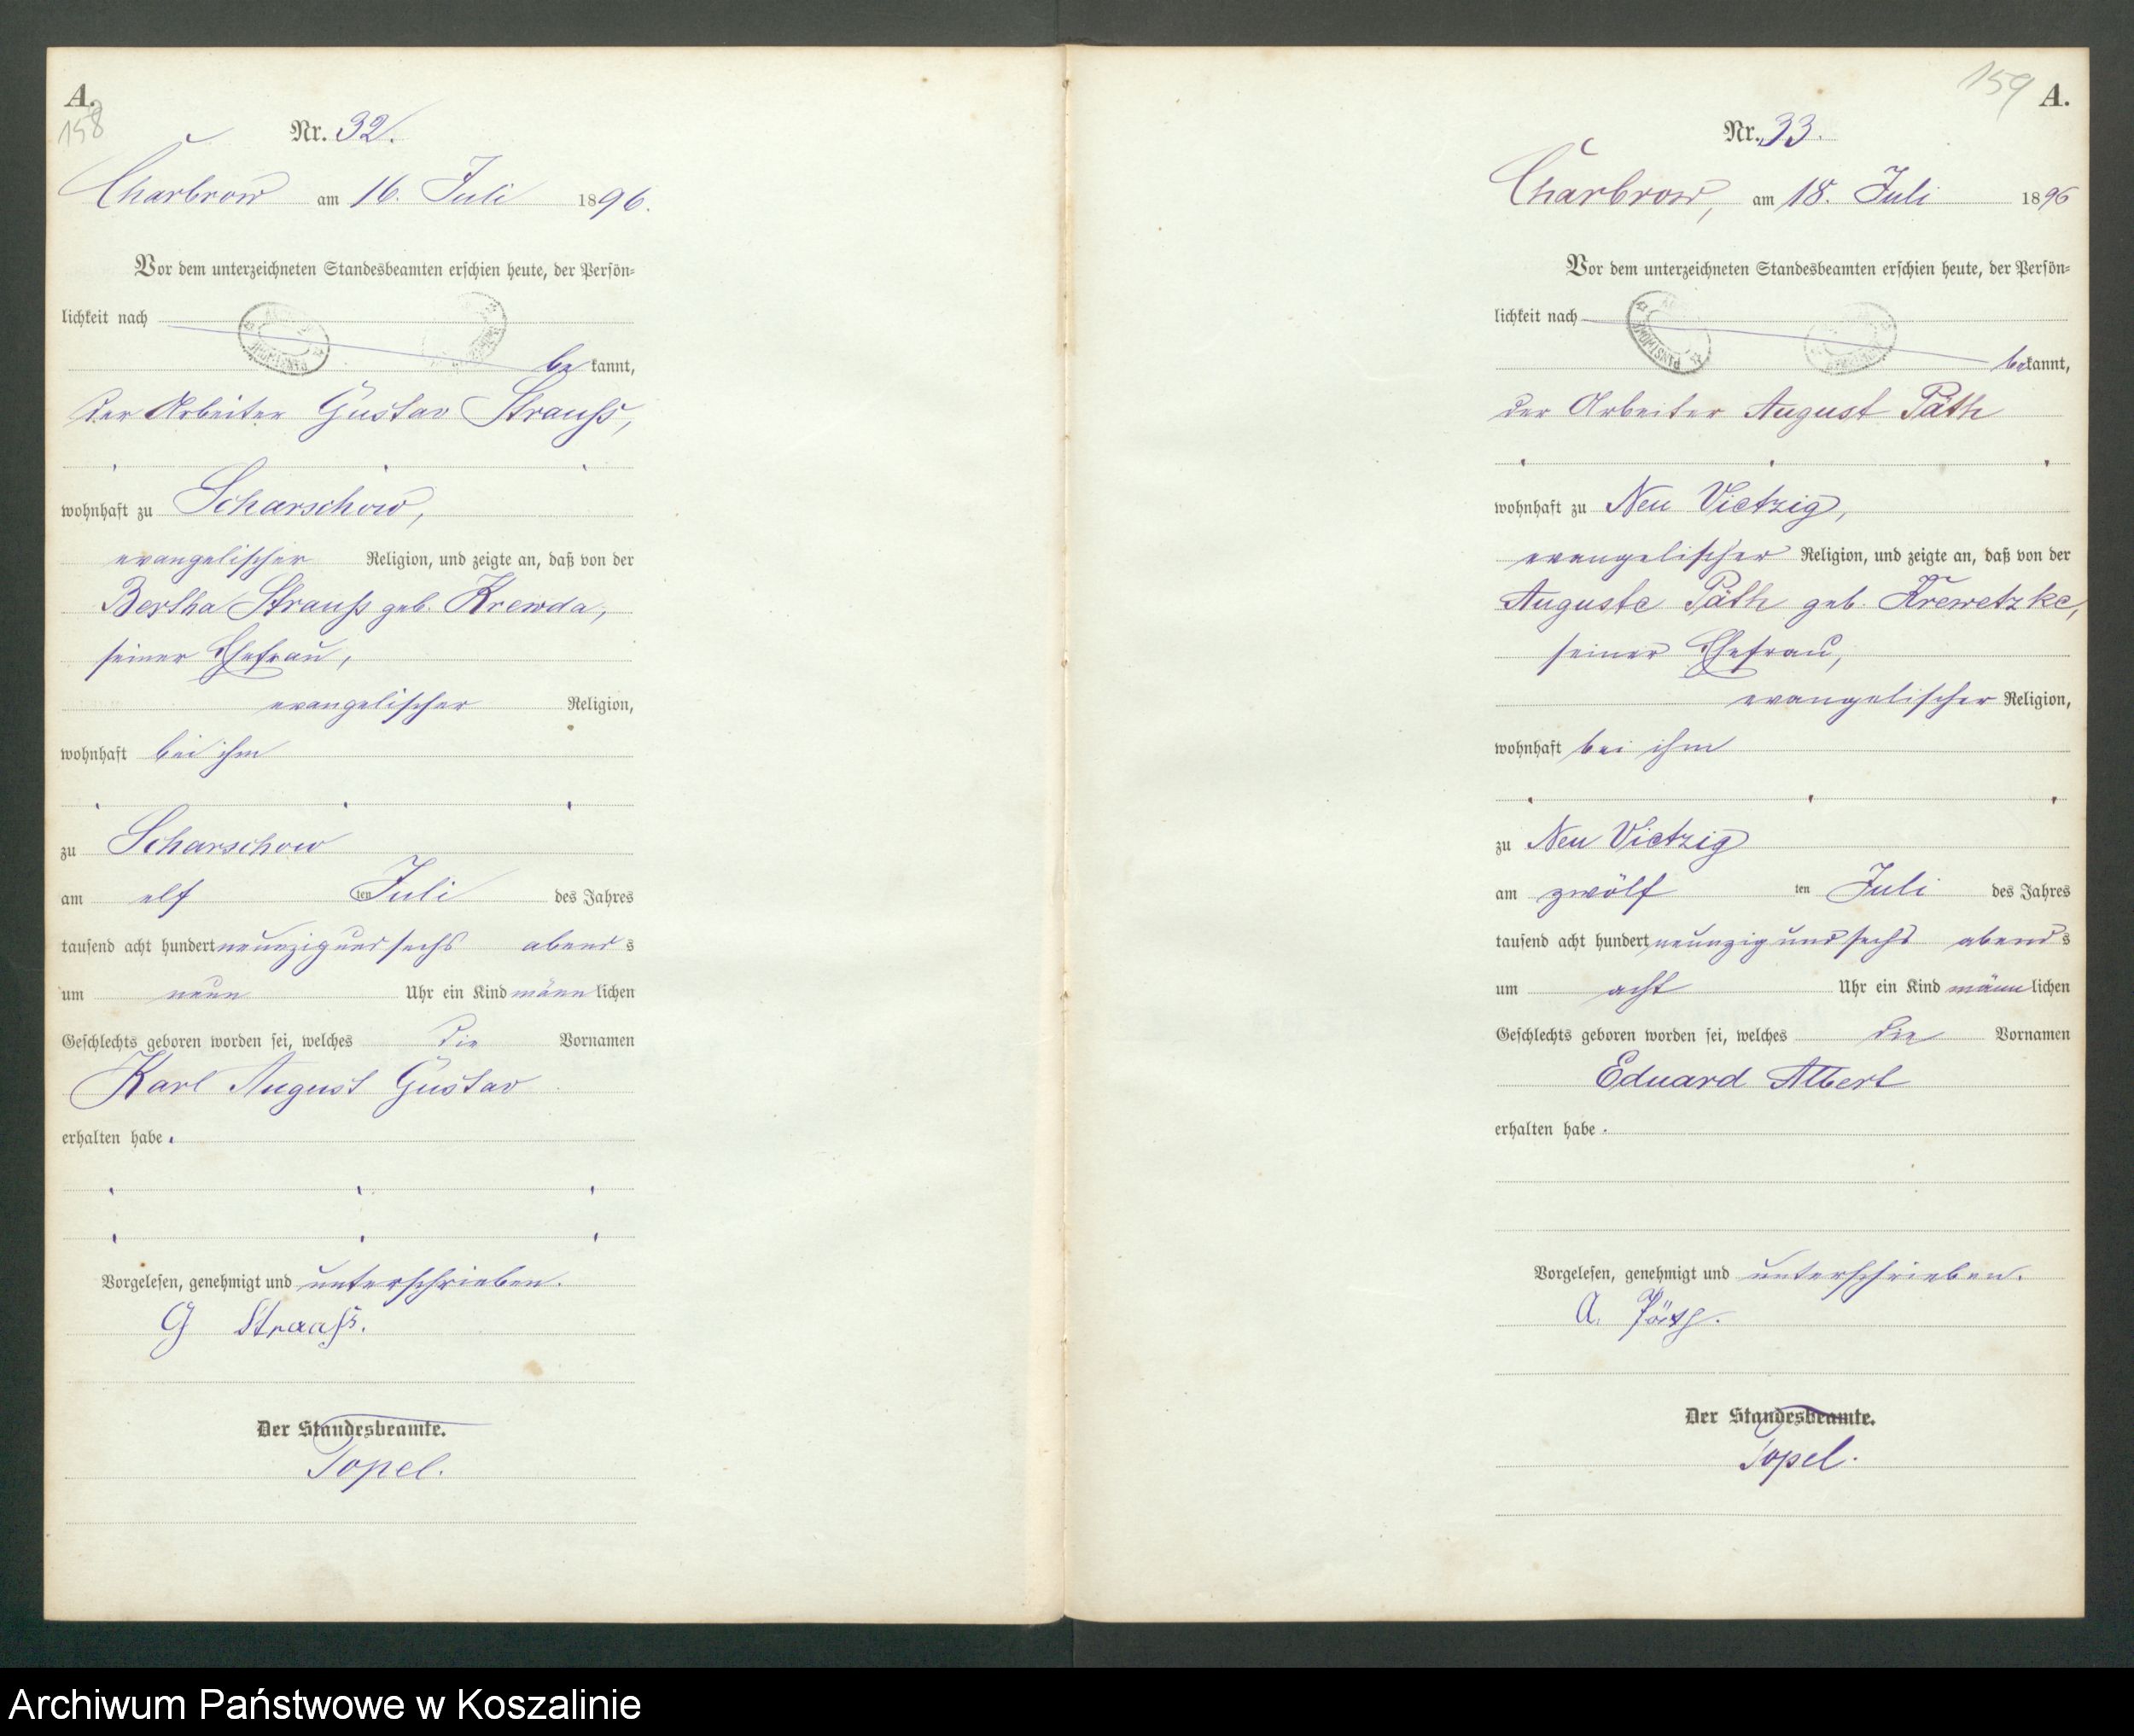 A.
158
Nr. 32.
Charbrow am 16. Juli 1896.
Vor dem unterzeichneten Standesbeamten erschien heute, der Persön=
lichkeit nach
bekannt,
der Arbeiter Gustav Strauß,
wohnhaft zu Scharschow,
evangelischer Religion, und zeigte an, daß von der
Bertha Strauß geb. Krewda,
seiner Ehefrau,
evangelischer Religion,
wohnhaft bei ihm
zu Scharschow
am elf ten Juli des Jahres
tausend acht hundert neunzig und sechs abends
um neun Uhr ein Kind männlichen
Geschlechts geboren worden sei, welches die Vornamen
Karl August Gustav
erhalten habe.
Vorgelesen, genehmigt und unterschrieben.
G Strauß.
Der Standesbeamte.
Topel.
159
A.
Nr. 33.
Charbrow, am 18. Juli 1896
Vor dem unterzeichneten Standesbeamten erschien heute, der Persön=
lichkeit nach
bekannt,
der Arbeiter August Päth
wohnhaft zu Neu Vietzig,
evangelischer Religion, und zeigte an, daß von der
Auguste Päth geb. Krewetzke,
seiner Ehefrau,
evangelischer Religion,
wohnhaft bei ihm
zu Neu Vietzig
am zwölf ten Juli des Jahres
tausend acht hundert neunzig und sechs abends
um acht Uhr ein Kind männlichen
Geschlechts geboren worden sei, welches die Vornamen
Eduard Albert
erhalten habe.
Vorgelesen, genehmigt und unterschrieben.
A. Päth.
Der Standesbeamte.
Topel.
Archiwum Państwowe w Koszalinie